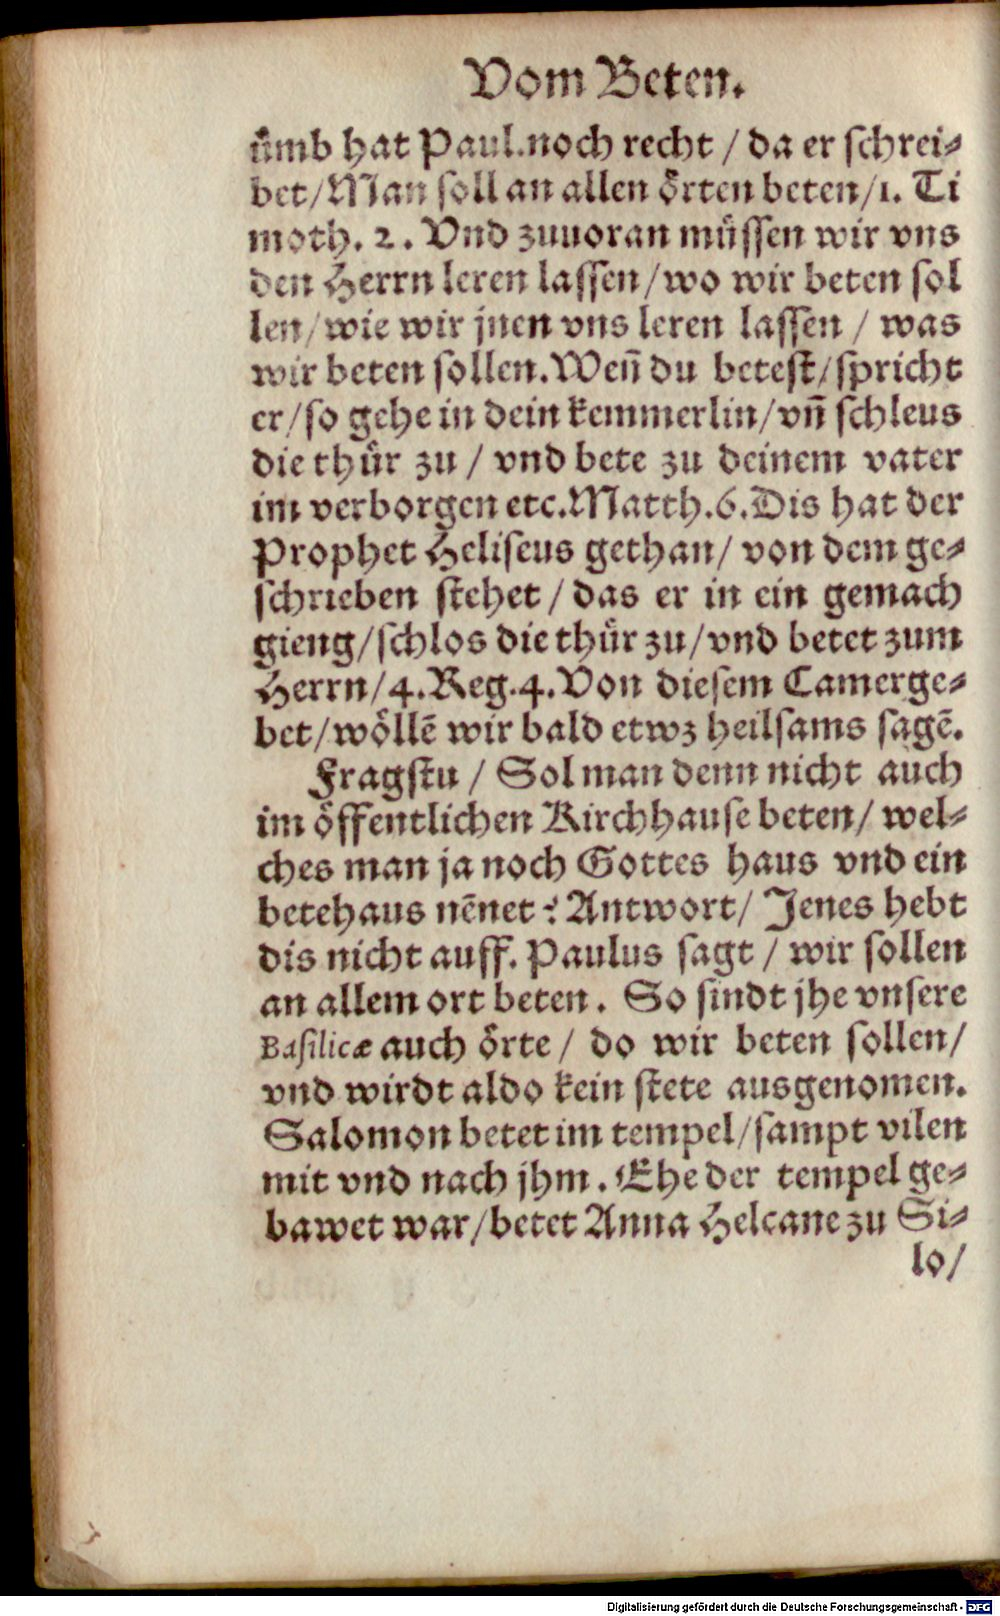 Vom Beten.
ümb hat Paul. noch recht / da er schrei⸗
bet / Man soll an allen örten beten / 1. Ti
moth. 2. Vnd zuuoran müssen wir vns
den Herrn leren lassen / wo wir beten sol
len / wie wir jnen vns leren lassen / was
wir beten sollen. Weñ du betest / spricht
er / so gehe in dein kemmerlin / vñ schleus
die thür zu / vnd bete zu deinem vater
im verborgen etc. Matth. 6. Dis hat der
Prophet Heliseus gethan / von dem ge⸗
schrieben stehet / das er in ein gemach
gieng / schlos die thür zu / vnd betet zum
Herrn / 4. Reg. 4. Von diesem Camerge⸗
bet / wöllē wir bald etwz heilsams sagē.
Fragstu / Sol man denn nicht auch
im öffentlichen Kirchhause beten / wel⸗
ches man ja noch Gottes haus vnd ein
betehaus nēnet ? Antwort / Jenes hebt
dis nicht auff. Paulus sagt / wir sollen
an allem ort beten. So sindt jhe vnsere
Basilicæ auch örte / do wir beten sollen /
vnd wirdt aldo kein stete ausgenomen.
Salomon betet im tempel / sampt vilen
mit vnd nach jhm. Ehe der tempel ge⸗
bawet war / betet Anna Helcane zu Si⸗
lo /
Digitalisierung gefördert durch die Deutsche Forschungsgemeinschaft - DFG